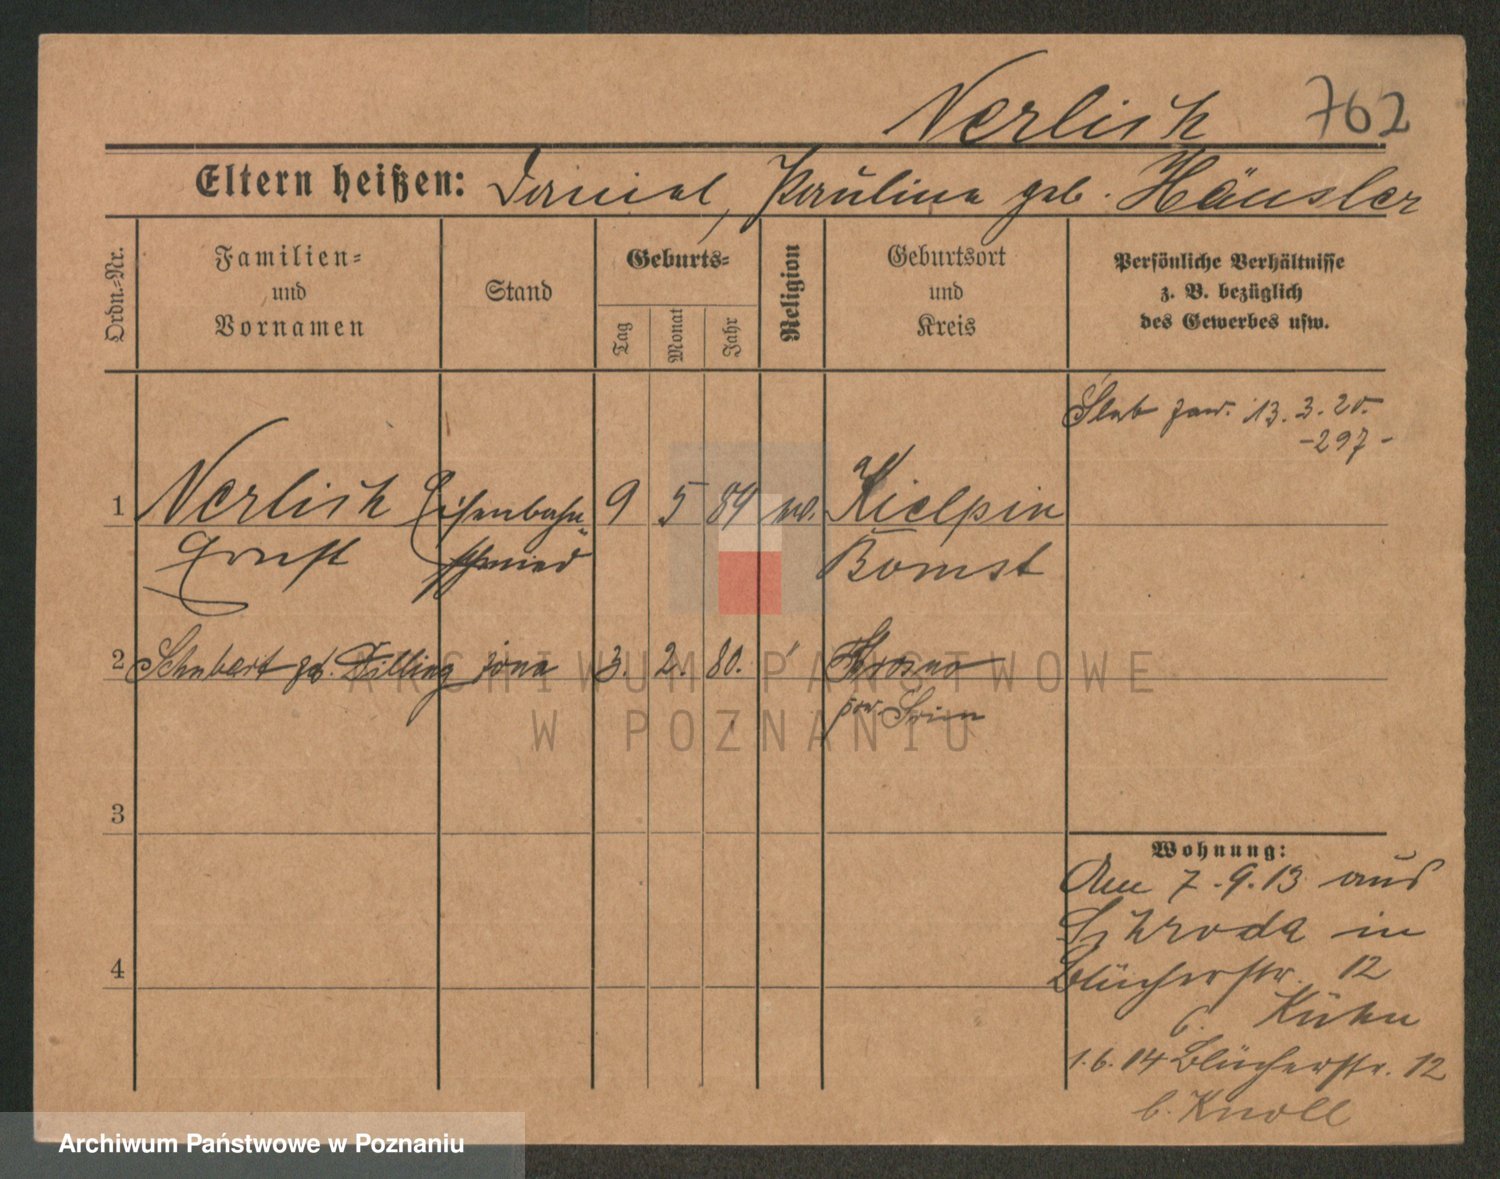 Nerlich 762
Eltern heißen: Daniel, Paulina geb. Häusler
Ordn.-Nr.
Familien-
und
Vornamen
Stand
Geburts-
Tag
Monat
Jahr
Religion
Geburtsort
und
Kreis
Persönliche Verhältnisse
z. B. bezüglich
des Gewerbes usw.
Ślub zaw. 13.3.20.
-297-
1 Nerlich Eisenbahn- 9 5 84 Kielpin
Ernst schmied Bomst
2 Schubert żona 3. 2. 80. Krosno
pow. Śrem
3
4
Wohnung:
Am 7.9.13 aus
Schroda in
Blücherstr. 12
b. Kühn
1.6.14 Blücherstr. 12
b. Knoll
ARCHIWUM PAŃSTWOWE
W POZNANIU
Archiwum Państwowe w Poznaniu